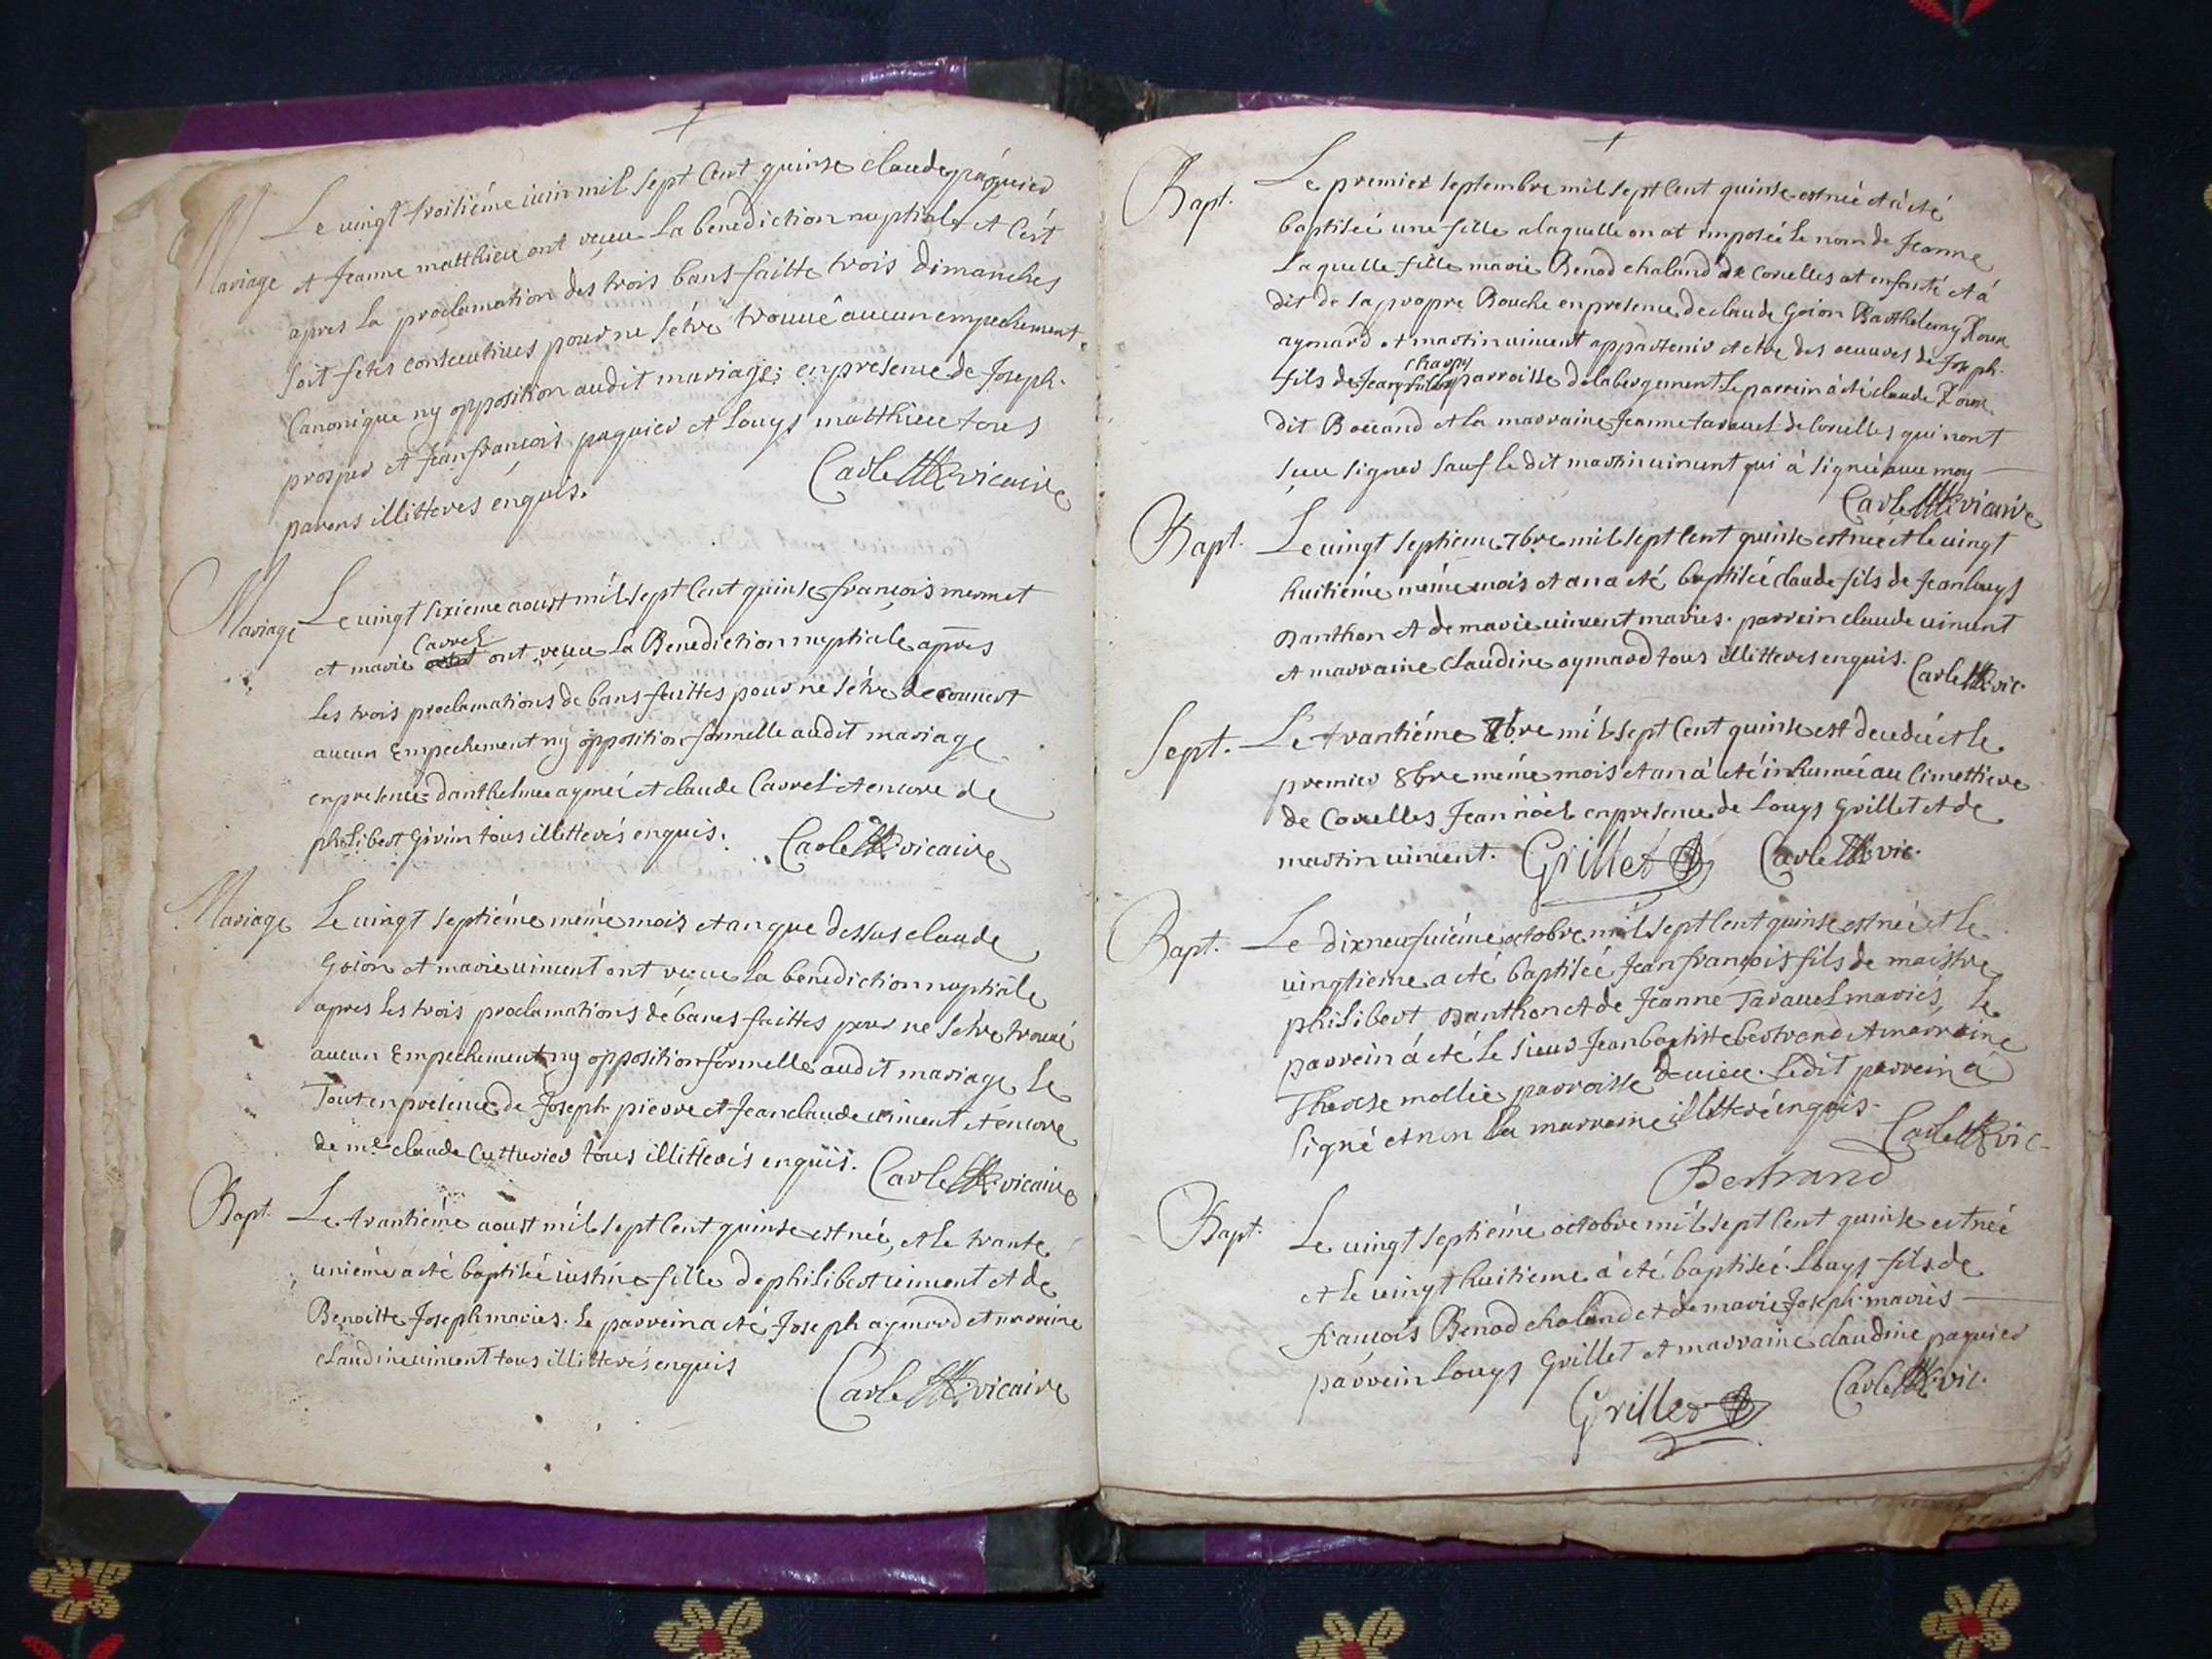 Mariage
Le vingt troisiéme iuin mil sept Cent quinse claude páquier
et Jeanne matthieu ont reçeu La benediction nuptiale et C'ést
apres La proclamation des trois bans faitte trois dimanches
soit fetes consecutives pour ne s'étre trouuê aucun empechement
Canonique ny opposition audit mariage; en presence de Joseph
prosper et Jean françois paquier et Louys matthieu tous
parens illitteres enquis. Carle vicaire
Mariage
Le vingt sixieme aoust mil sept Cent quinse françois mermet
Carrel
et marie ont reçeu La Benediction nuptiale apres
Les trois proclamations de bans faittes pour ne s'étre decouvert
aucun Empechement ny opposition formelle audit mariage
en presence d'anthelme aymé et claude Carrel et encore de
philibert Givin tous illitterés enquis. Carle vicaire
Mariage
Le vingt septiéme méme mois et an que dessus claude
Goion et marie uincent ont reçeu La benediction nuptiale
apres Les trois proclamations de bancs faittes pour ne s'étre trouué
aucun Empechement ny opposition formelle audit mariage Le
Tout en présence de Joseph pierre et Jean claude uincent et encore
de me claude Cutturier tous illitterés enquis. Carle vicaire
Bapt.
Le trantiéme aoust mil sept Cent quinse est neé, et le trante
uniéme a eté baptiseé iustine fille de philibert uincent et de
Benoitte Joseph mariés. Le parrein a eté Joseph aymard et marreine
claudine uincent tous illitterés enquis
Carle vicaire
Bapt.
Le premier septembre mil sept Cent quinse est neé et à eté
baptiseé une fille a laquelle on at imposeé Le nom de Jeanne
Laquelle fille marie Benod chaland de Corcelles at enfanté et á
dit de sa propre Bouche en presence de claude Goion Barthelemy Roux
aymard et martin uincent appartenir et etre des oeuures de Joseph
charpy
fils de Jean parroisse de labergement Le parrein á eté claude Roux
dit Boccand et la marraine Jeanne tarauel de Corcelles qui n'ont
sceu signer sauf le dit martin uincent qui à signeé auec moy
Carle vicaire
Bapt.
Le uingt septieme 7bre mil sept Cent quinse est neé et le uingt
huitiéme méme mois et an a eté baptiseé claude fils de Jean louys
Danthon et de marie uincent mariés. parrein claude uincent
et marraine claudine aymard tous illitteres enquis. Carle vic.
Sept.
Le trantiéme 7bre mil sept Cent quinse est decedeé et le
premier 8bre méme mois et an à eté inhumeé au Cimettiere
de Corcelles Jean noël en presence de Louys Grillet et de
martin uincent. Grillet Carle vic.
Bapt.
Le dixneufuiéme octobre mil sept Cent quinse est neé et le
uingtieme a eté baptiseé Jean françois fils de maistre
philibert Danthon et de Jeanne Tarauel mariés, Le
parrein á eté le sieur Jean baptitte bertrand et marreine
Therese mollie parroisse de uieu. Ledit parrein á
signé et non la marreine illitteré enquis. Carle vic.
Bertrand
Bapt.
Le uingt septiéme octobre mil sept Cent quinse est neé
et le uingt huitieme à été baptiseé. Louys fils de
françois Benod chaland et de marie Joseph mariés
parrein Louys Grillet et marraine claudine paquier
Grillet Carle vic.